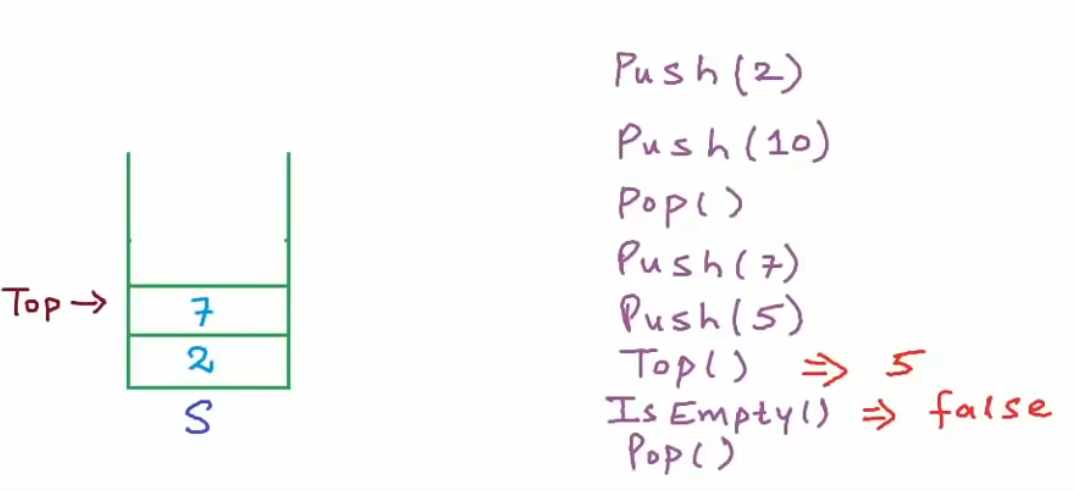 Top →
7
2
S
Push(2)
Push(10)
Pop()
Push(7)
Push(5)
Top() ⇒ 5
IsEmpty() ⇒ false
Pop()